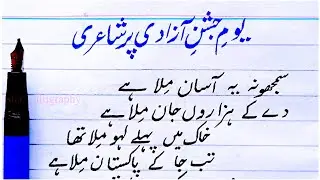 یومِ جشنِ آزادی پر شاعری
سمجھو نہ یہ آسان مِلا ہے
دے کے ہزاروں جان مِلا ہے
خاک میں پہلے لہو مِلا تھا
تب جا کے پاکستان مِلا ہے